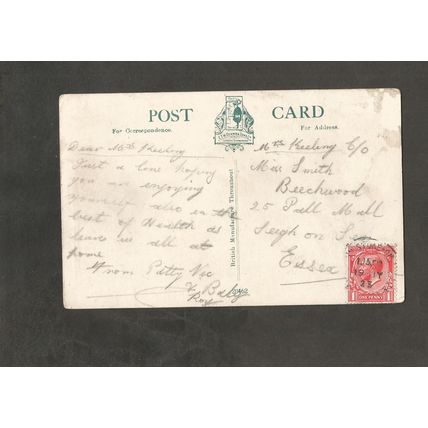 POST CARD
For Correspondence.
For Address.
Dear Mrs Keeling
Just a line hoping
you are enjoying
yourself also in the
best of Health as
leave us all at
home
From Patty Vic
& Baby
Roy
British Manufacture Throughout
Mrs Keeling C/o
Miss Smith
Beechwood
25 Pall Mall
Leigh on Sea
Essex
ONE PENNY